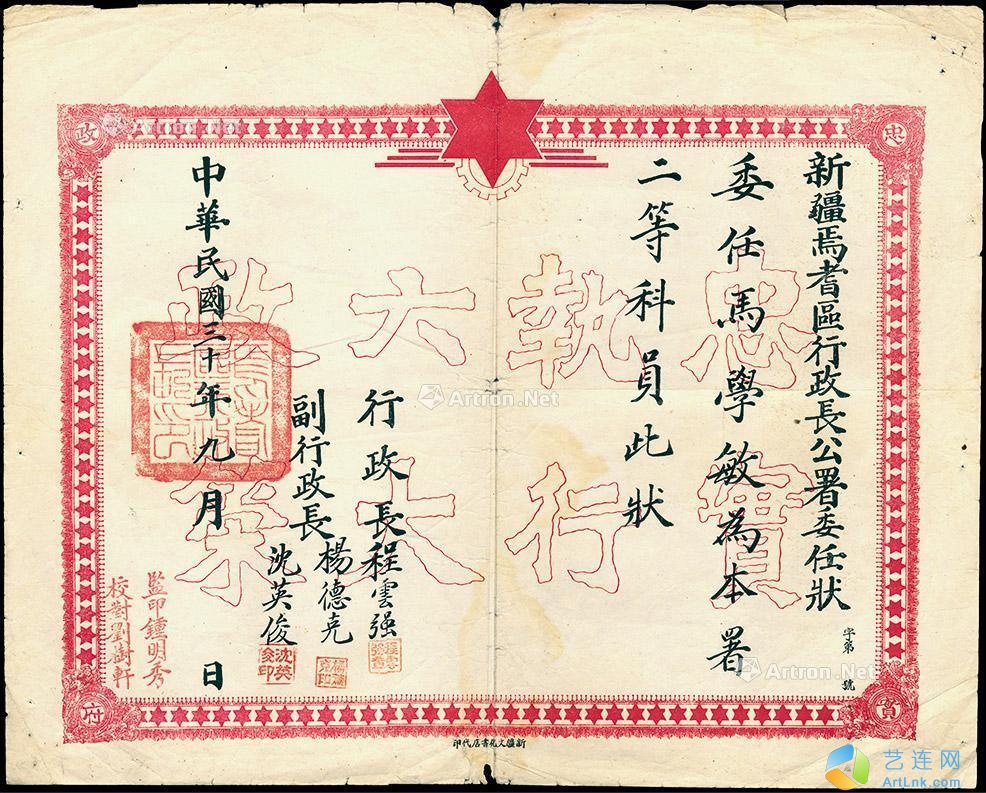 新疆焉耆區行政長公署委任狀
字第 號
委任馬學敏為本署
二等科員此狀
行政長程雲强
副行政長楊德克
沈英俊
中華民國三十年九月 日
監印鍾明秀
校對劉樹軒
忠實
執行
六大
政策
忠
貞
政
府
沈英
俊印
新疆文化書店代印
Artron.Net
Artron.Net
Artron.Net
艺连网
ArtLnk.com